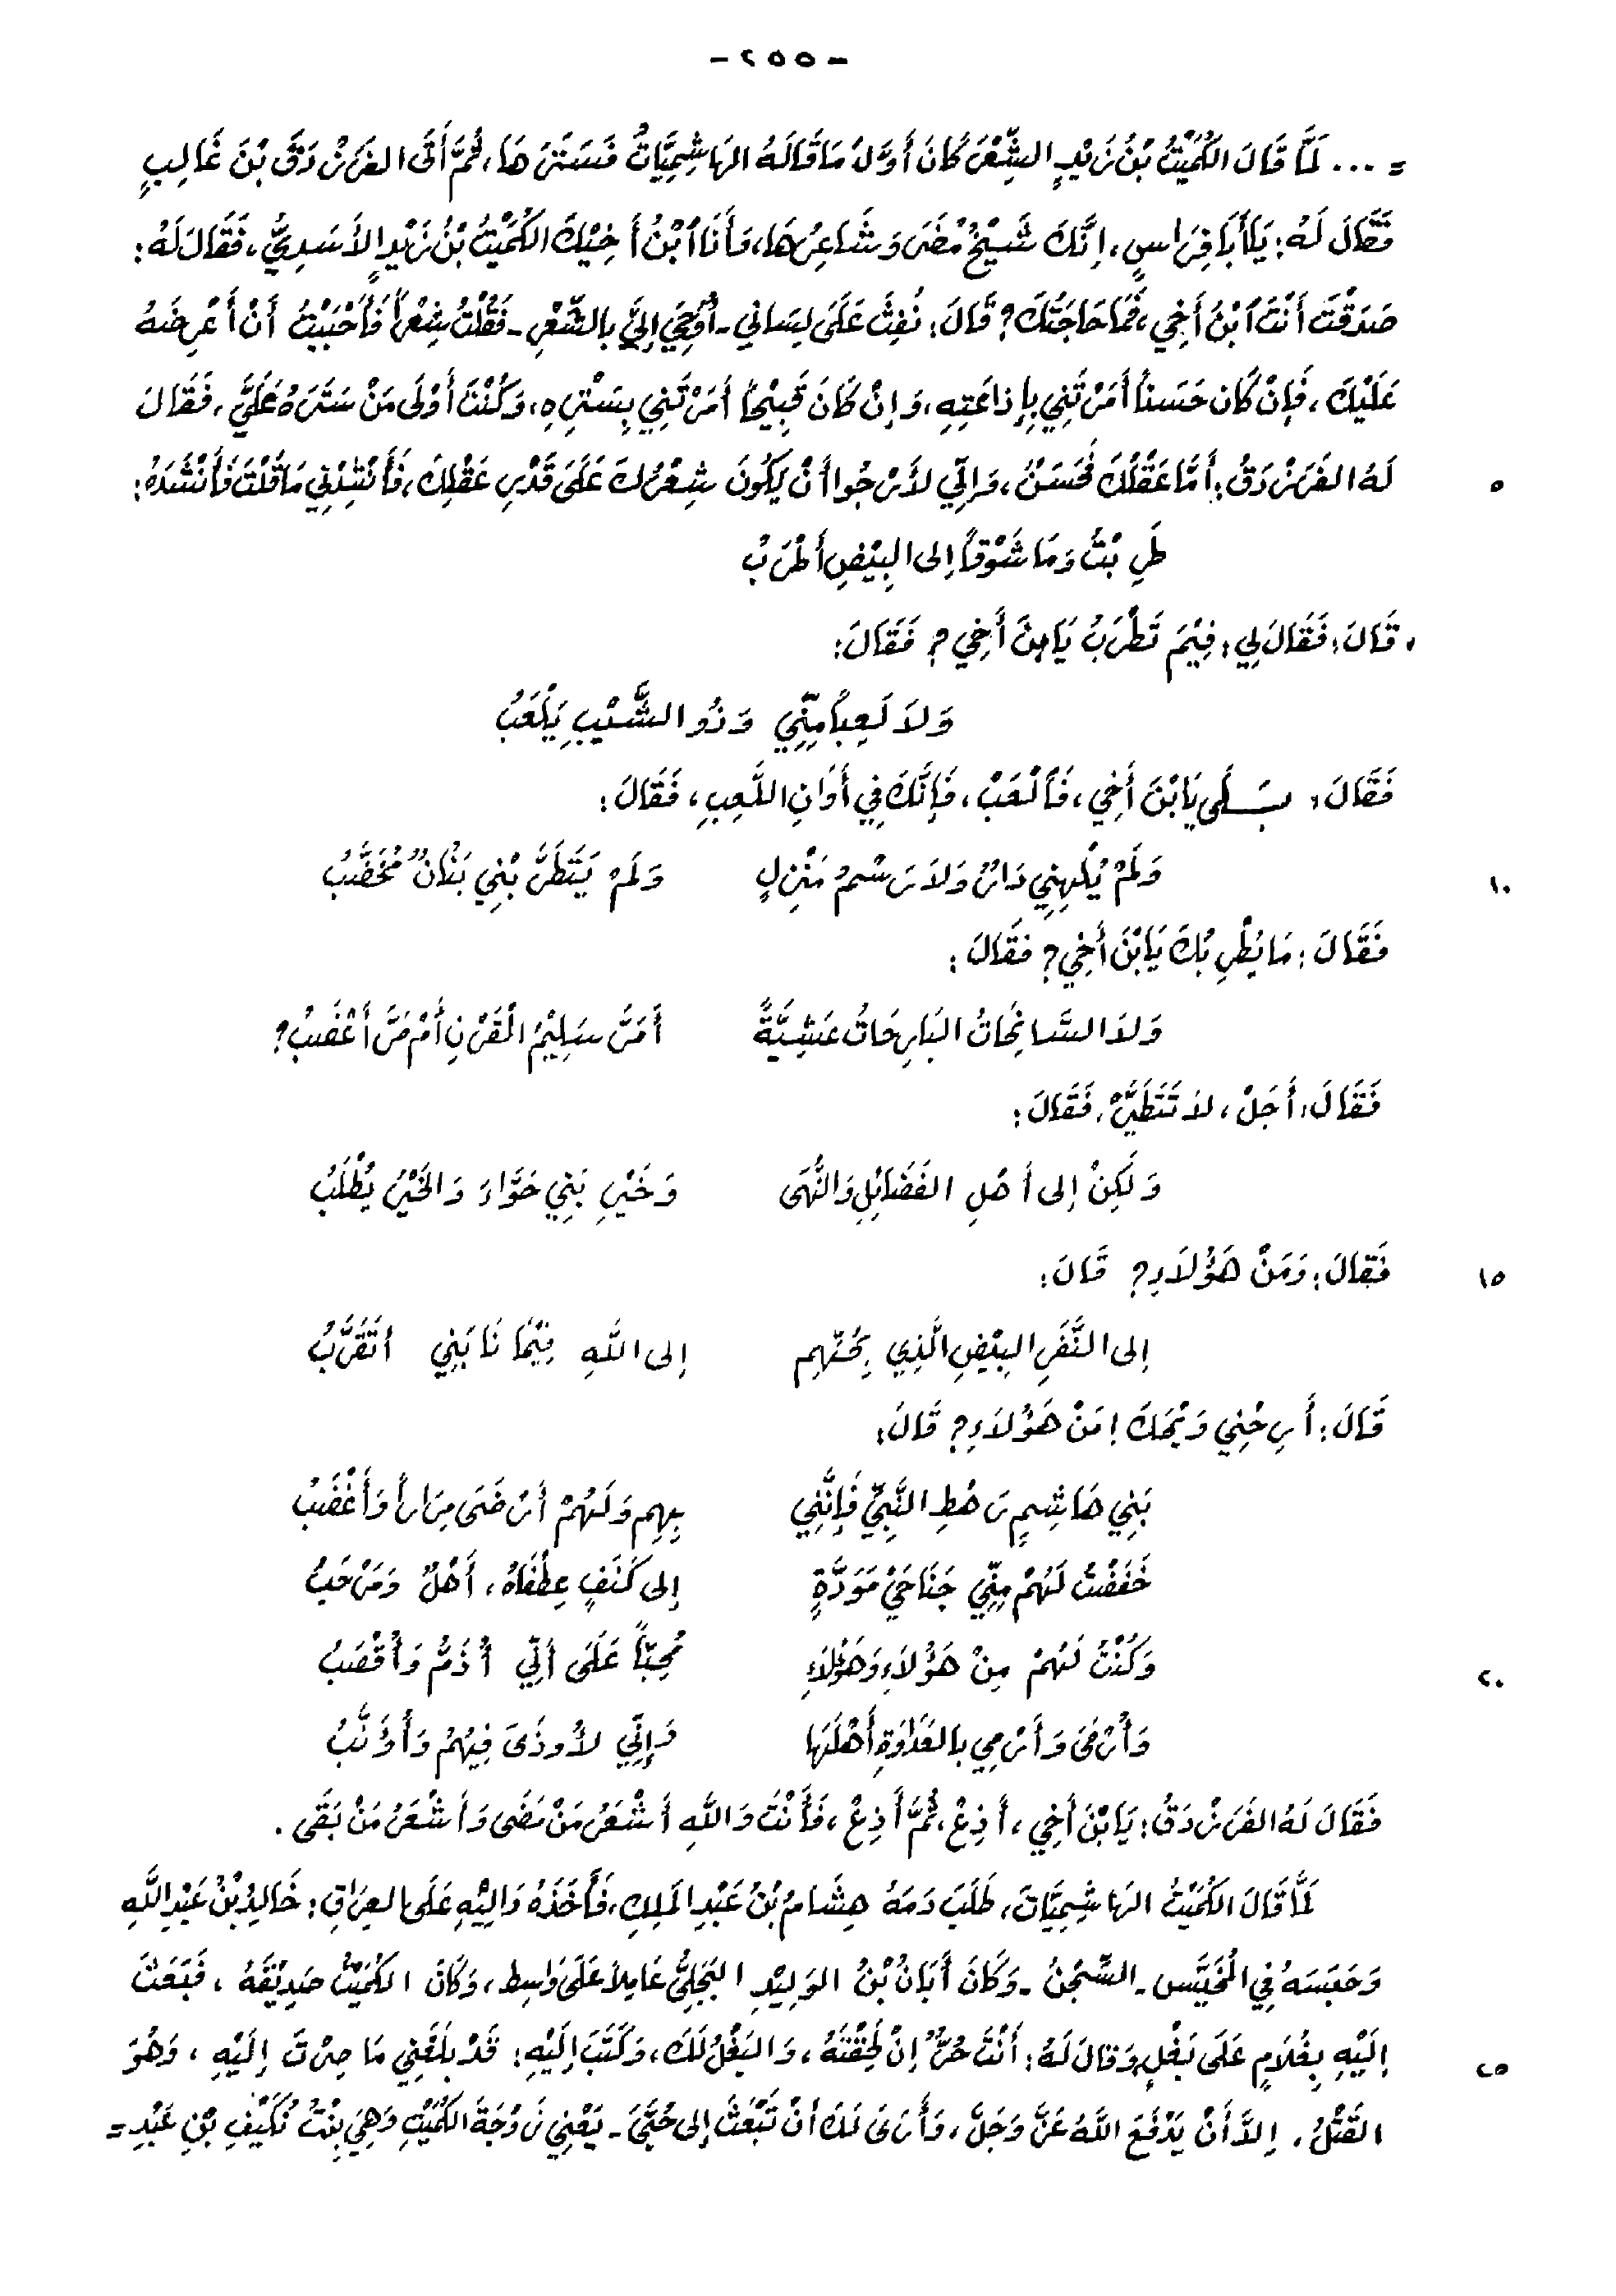 - ٢٥٥ -
= ... لَمَّا قَالَ الكُمَيْتُ بْنُ زَيْدٍ الشِّعْرَ كَانَ أَوَّلَ مَا قَالَهُ الهَاشِمِيَّاتُ فَسَتَرَهَا، ثُمَّ أَتَى الفَرَزْدَقَ بْنَ غَالِبٍ
فَقَالَ لَهُ: يَا أَبَا فِرَاسٍ، إِنَّكَ شَيْخُ مُضَرَ وَشَاعِرُهَا، وَأَنَا ابْنُ أَخِيْكَ الكُمَيْتُ بْنُ زَيْدٍ الأَسَدِيُّ، فَقَالَ لَهُ:
صَدَقْتَ أَنْتَ ابْنُ أَخِي، فَمَا حَاجَتُكَ؟ قَالَ: نُفِثَ عَلَى لِسَانِي - أُوحِيَ إِلَيَّ بِالشِّعْرِ - فَقُلْتُ شِعْراً فَأَحْبَبْتُ أَنْ أَعْرِضَهُ
عَلَيْكَ، فَإِنْ كَانَ حَسَناً أَمَرْتَنِي بِإِذَاعَتِهِ، وَإِنْ كَانَ قَبِيْحاً أَمَرْتَنِي بِسَتْرِهِ، وَكُنْتَ أَوْلَى مَنْ سَتَرَهُ عَلَيَّ، فَقَالَ
لَهُ الفَرَزْدَقُ: أَمَّا عَقْلُكَ فَحَسَنٌ، وَإِنِّي لأَرْجُوا أَنْ يَكُونَ شِعْرُكَ عَلَى قَدْرِ عَقْلِكَ، فَأَنْشِدْنِي مَا قُلْتَ فَأَنْشَدَهُ: ٥
طَرِبْتُ وَمَا شَوْقاً إِلى البِيْضِ أَطْرَبُ
، قَالَ: فَقَالَ لِي: فِيْمَ تَطْرَبُ يَا بْنَ أَخِي؟ فَقَالَ:
وَلاَ لَعِباً مِنِّي وَذُو الشَّيْبِ يَلْعَبُ
فَقَالَ: بَلَى يَا بْنَ أَخِي، فَالْعَبْ، فَإِنَّكَ فِي أَوَانِ اللَّعِبِ، فَقَالَ:
وَلَمْ يُلْهِنِي دَارٌ وَلاَ رَسْمُ مَنْزِلٍ وَلَمْ يَتَطَرَّبْنِي بَنَانٌ مُخَضَّبُ ١٠
فَقَالَ: مَا يُطْرِبُكَ يَا بْنَ أَخِي؟ فَقَالَ:
وَلاَ السَّانِحَاتُ البَارِحَاتُ عَشِيَّةً أَمَرَّ سَلِيْمُ الْقَرْنِ أَمْ مَرَّ أَعْضَبُ؟
فَقَالَ: أَجَلْ، لاَ تَتَطَيَّرْ، فَقَالَ:
وَلَكِنْ إِلى أَهْلِ الفَضَائِلِ وَالنُّهَى وَخَيْرِ بَنِي حَوَّاءَ وَالخَيْرُ يُطْلَبُ
فَقَالَ: وَمَنْ هَؤُلاَءِ؟ قَالَ: ١٥
إِلى النَّفَرِ البِيْضِ الَّذِي بِحُبِّهِم إِلى اللَّهِ فِيْمَا نَابَنِي أَتَقَرَّبُ
قَالَ: أَرِحْنِي وَيْحَكَ! مَنْ هَؤُلاَءِ؟ قَالَ:
بَنِي هَاشِمٍ رَهْطِ النَّبِيِّ فَإِنَّنِي بِهِم وَلَهُمْ أَرْضَى مِرَاراً وَأَغْضَبُ
خَفَضْتُ لَهُمْ مِنِّي جَنَاحَيْ مَوَدَّةٍ إِلى كَنَفٍ عِطْفَاهُ، أَهْلٌ وَمَرْحَبُ
وَكُنْتُ لَهُمْ مِنْ هَؤُلاَءِ وَهَؤُلاَءِ مُحِبّاً عَلَى أَنِّي أُذَمُّ وَأُقْصَبُ ٢٠
وَأُرْمَى وَأَرْمِي بِالعَدَاوَةِ أَهْلَهَا وَإِنِّي لأُوذَى فِيْهُمُ وَأُؤَنَّبُ
فَقَالَ لَهُ الفَرَزْدَقُ: يَا بْنَ أَخِي، أَذِعْ، ثُمَّ أَذِعْ، فَأَنْتَ وَاللَّهِ أَشْعَرُ مَنْ مَضَى وَأَشْعَرُ مَنْ بَقَى.
لَمَّا قَالَ الكُمَيْتُ الهَاشِمِيَّاتَ، طَلَبَ دَمَهُ هِشَامُ بْنُ عَبْدِ الْمَلِكِ، فَأَخَذَهُ وَالِيْهِ عَلَى العِرَاقِ: خَالِدُ بْنُ عَبْدِ اللَّهِ
وَحَبَسَهُ فِي الْمُخَيَّس - السِّجْنُ - وَكَانَ أَبَانُ بْنُ الوَلِيْدِ البَجَلِيُّ عَامِلاً عَلَى وَاسِط، وَكَانَ الكُمَيْتُ صَدِيْقَهُ، فَبَعَثَ
إِلَيْهِ بِغُلاَمٍ عَلَى بَغْلٍ وَقَالَ لَهُ: أَنْتَ حُرٌّ إِنْ لَحِقْتَهُ، وَالبَغْلُ لَكَ، وَكَتَبَ إِلَيْهِ: قَدْ بَلَغَنِي مَا صِرْتَ إِلَيْهِ، وَهُوَ ٢٥
القَتْلُ، إِلاَّ أَنْ يَدْفَعَ اللَّهُ عَزَّ وَجَلَّ، وَأَرَى لَكَ أَنْ تَبْعَثَ إِلى حُبَّى - يَعْنِي زَوْجَةَ الكُمَيْتِ وَهِيَ بِنْتُ نُكَيْفِ بْنِ عَبْدِ =